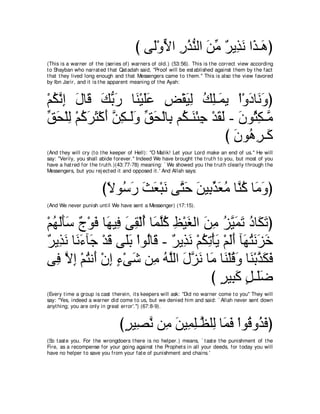 ( هَـذَا نَذِيرٌ مِّنَ النُّذُرِ الاٍّوْلَى )
(This is a warner of the (series of) warners of old.) (53:56). This is the correct view according
to Shayban who narrated that Qatadah said, "Proof will be established against them by the fact
that they lived long enough and that Messengers came to them." This is also the view favored
by Ibn Jarir, and it is the apparent meaning of the Ayah:
(وَنَادَوْاْ يمَـلِكُ لِيَقْضِ عَلَيْنَا رَبُّكَ قَالَ إِنَّكُمْ
مَّـكِثُونَ - لَقَدْ جِئْنَـكُم بِالْحَقِّ وَلَـكِنَّ أَكْثَرَكُمْ لِلْحَقِّ
كَـرِهُونَ )
(And they will cry (to the keeper of Hell): "O Malik! Let your Lord make an end of us." He will
say: "Verily, you shall abide forever." Indeed We have brought the truth to you, but most of you
have a hatred for the truth.)(43:77-78) meaning: `We showed you the truth clearly through the
Messengers, but you rejected it and opposed it.' And Allah says:
(وَمَا كُنَّا مُعَذِّبِينَ حَتَّى نَبْعَثَ رَسُولاً)
(And We never punish until We have sent a Messenger) (17:15).
(تَكَادُ تَمَيَّزُ مِنَ الغَيْظِ كُلَّمَا أُلْقِىَ فِيهَا فَوْجٌ سَأَلَهُمْ
خَزَنَتُهَآ أَلَمْ يَأْتِكُمْ نَذِيرٌ - قَالُوا بَلَى قَدْ جَآءَنَا نَذِيرٌ
فَكَذَّبْنَا وَقُلْنَا مَا نَزَّلَ اللَّهُ مِن شَىْءٍ إِنْ أَنتُمْ إِلاَّ فِى
ضَلَـلٍ كَبِيرٍ )
(Every time a group is cast therein, its keepers will ask: "Did no warner come to you" They will
say: "Yes, indeed a warner did come to us, but we denied him and said: `Allah never sent down
anything; you are only in great error'.") (67:8-9).
(فَذُوقُواْ فَمَا لِلظَّـلِمِينَ مِن نَّصِيرٍ)
(So taste you. For the wrongdoers there is no helper.) means, `taste the punishment of the
Fire, as a recompense for your going against the Prophets in all your deeds, for today you will
have no helper to save you from your fate of punishment and chains.'